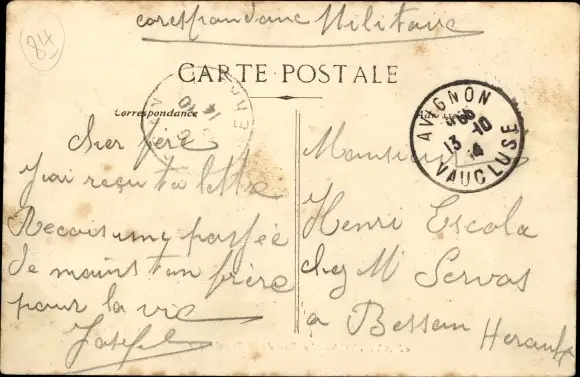 84
corespondance Militaire
CARTE POSTALE
Correspondance
Adresse
AVIGNON
13 - 10
14
VAUCLUSE
14 10
Cher frère
J'ai reçu ta lettre
Recois une
de mains ton frère
pour la vie
Joseph
Monsieur
Henri Escola
chez Mr Servas
a Bessan Herault